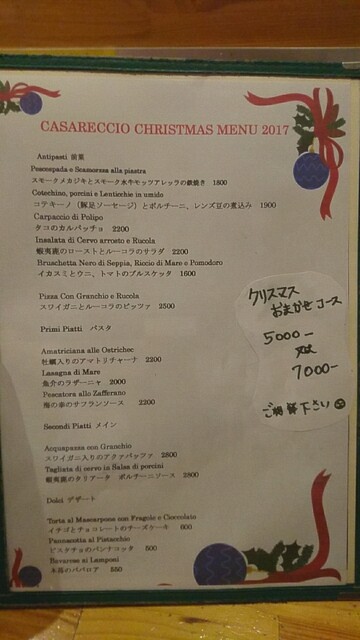 CASARECCIO CHRISTMAS MENU 2017
Antipasti 前菜
Pescespada e Scamorza alla piastra
スモークメカジキとスモーク水牛モッツアレッラの鉄焼き 1800
Cotechino, porcini e Lenticchie in umido
コテキーノ（豚足ソーセージ）とポルチーニ、レンズ豆の煮込み 1900
Carpaccio di Polipo
タコのカルパッチョ 2200
Insalata di Cervo arrosto e Rucola
蝦夷鹿のローストとルーコラのサラダ 2200
Bruschetta Nero di Seppia, Riccio di Mare e Pomodoro
イカスミとウニ、トマトのブルスケッタ 1600
Pizza Con Granchio e Rucola
スワイガニとルーコラのピッツァ 2500
Primi Piatti パスタ
Amatriciana alle Ostrichec
牡蠣入りのアマトリチャーナ 2200
Lasagna di Mare
魚介のラザーニャ 2000
Pescatora allo Zafferano
海の幸のサフランソース 2200
Secondi Piatti メイン
Acquapazza con Granchio
スワイガニ入りのアクアパッツァ 2800
Tagliata di cervo in Salsa di porcini
蝦夷鹿のタリアータ ポルチーニソース 2800
Dolci デザート
Torta al Mascarpone con Fragole e Cioccolato
イチゴとチョコレートのチーズケーキ 600
Pannacotta al Pistacchio
ピスタチオのパンナコッタ 500
Bavarese ai Lamponi
木苺のババロア 550
クリスマス
おまかせコース
5000-
又は
7000-
ご相談下さい